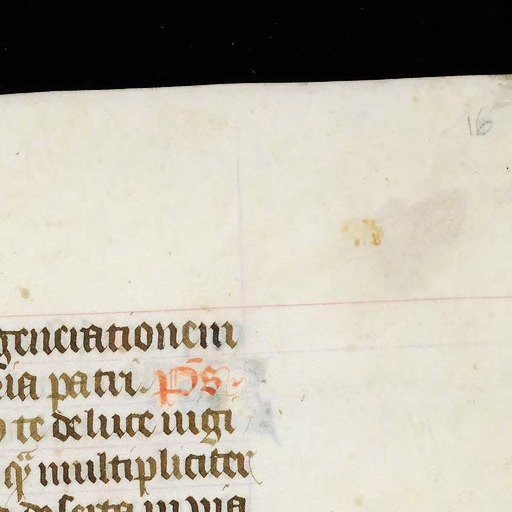 16
generationem
ria patri. Ps.
te de luce uigi
q̄ multipliciter
deserta inuia